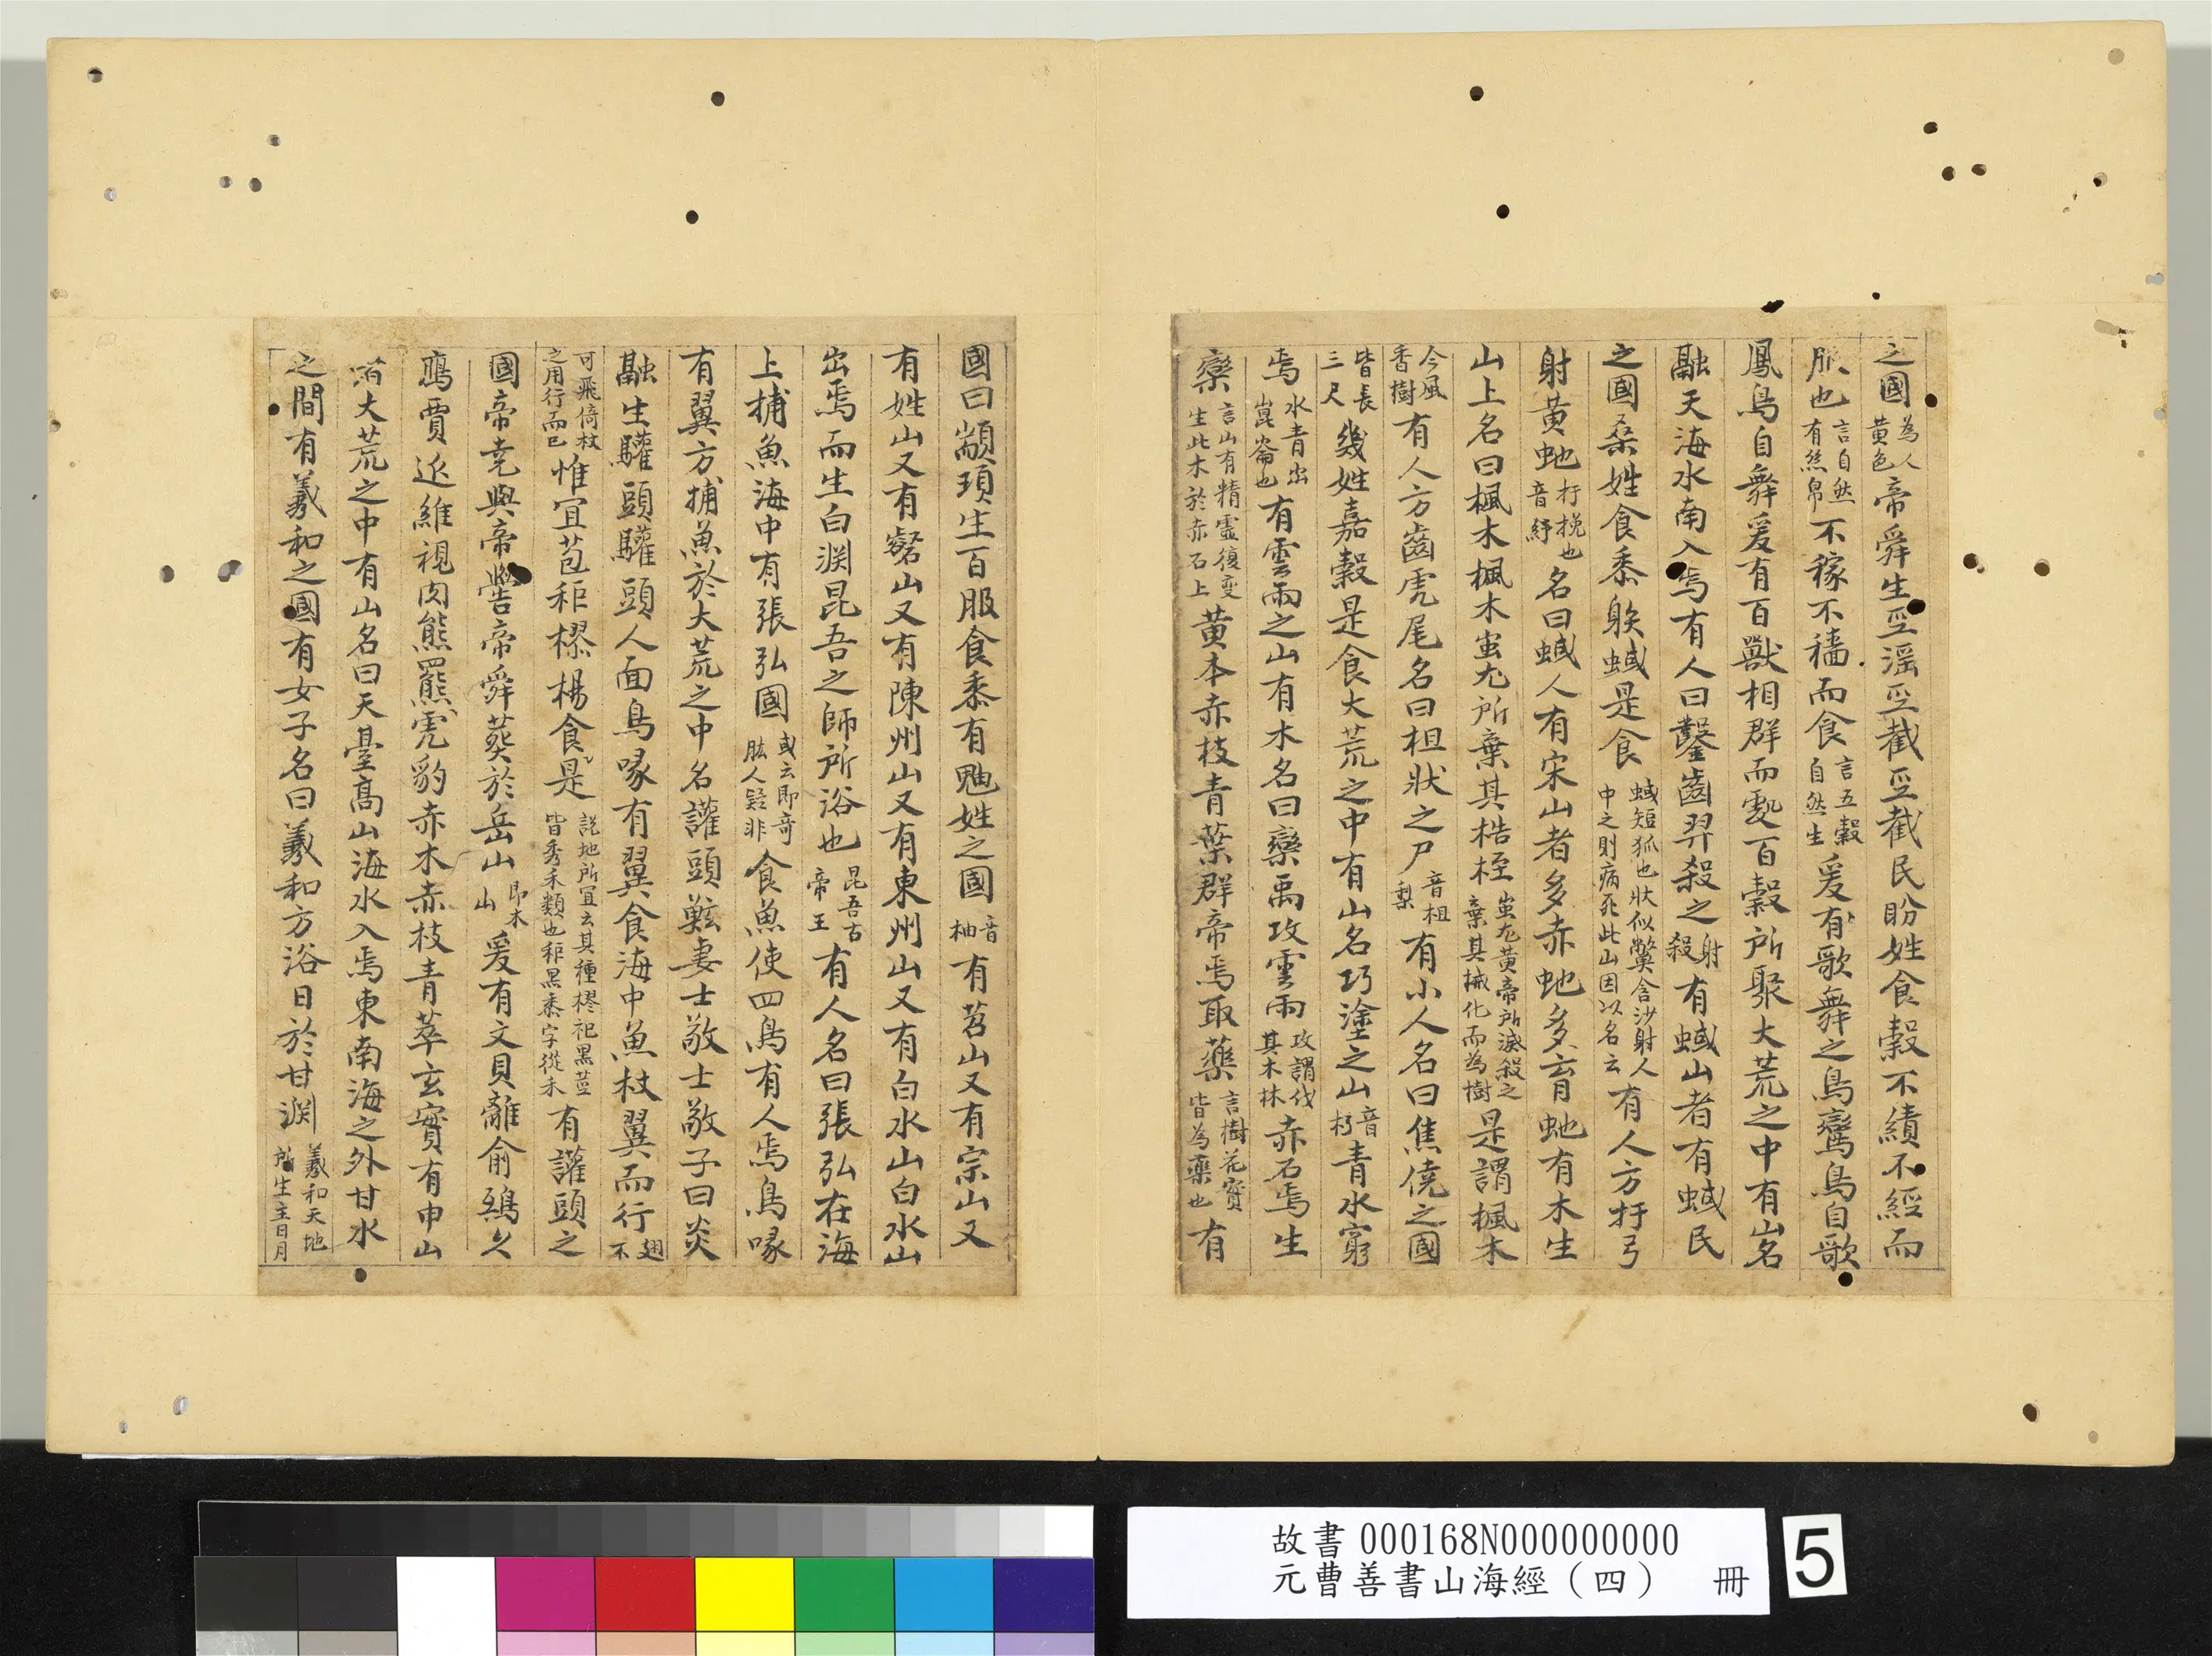 之國為人黃色帝舜生巠滛巠截巠截民盼姓食糓不績不經而
服也言自然有絲帛不稼不穡而食言五穀自然生爰有歌舞之鳥鸞鳥自歌
鳳鳥自舞爰有百獸相群而䖏百糓所聚大荒之中有山名
融天海水南入焉有人曰鑿齒羿殺之射殺有蜮山者有蜮民
之國桑姓食黍躲蜮是食蜮短狐也狀似鱉含沙射人中之則病死此山因以名云有人方扜弓
射黃虵扜挽也音紆名曰蜮人有宋山者多赤虵多育虵有木生
山上名曰楓木楓木蚩尤所棄其梏桎蚩尤黃帝所滅殺之棄其械化而為樹是謂楓木
今風香樹有人方齒虎尾名曰柤狀之尸音柤梨有小人名曰焦僥之國
皆長三尺幾姓嘉穀是食大荒之中有山名㱙塗之山音朽青水窮
焉水青出崑崙也有雲雨之山有木名曰欒禹攻雲雨攻謂伐其木林赤石焉生
欒言山有精靈復变生此木於赤石上黃本赤枝青葉群帝焉取藥言樹花實皆為藥也有
國曰顓頊生百服食黍有鼬姓之國音柚有苕山又有宗山又
有姓山又有壑山又有陳州山又有東州山又有白水山白水山
出焉而生白渊昆吾之師所浴也昆吾古帝王有人名曰張弘在海
上捕魚海中有張弘國或云即竒肱人疑非食魚使四鳥有人焉鳥喙
有翼方捕魚於大荒之中名讙頭鯀妻士敬士敬子曰炎
融生驩頭驩頭人面鳥喙有翼食海中魚杖翼而行翅不
可飛倚杖之用行而已惟宜芑秬樛楊食是說地所宜云其種樛祀黑荁皆秀禾類也秬黑黍字從禾有讙頭之
國帝尭與帝嚳帝舜葬於岳山即木山爰有文貝離俞鴟久
鷹賈𨒬維視肉熊羆虎豹赤木赤枝青萃玄實有申山
有大荒之中有山名曰天臺髙山海水入焉東南海之外甘水
之間有羲和之國有女子名曰羲和方浴日於甘渊羲和天地所生主日月
故書 000168N000000000
元曹善書山海經（四） 冊
5